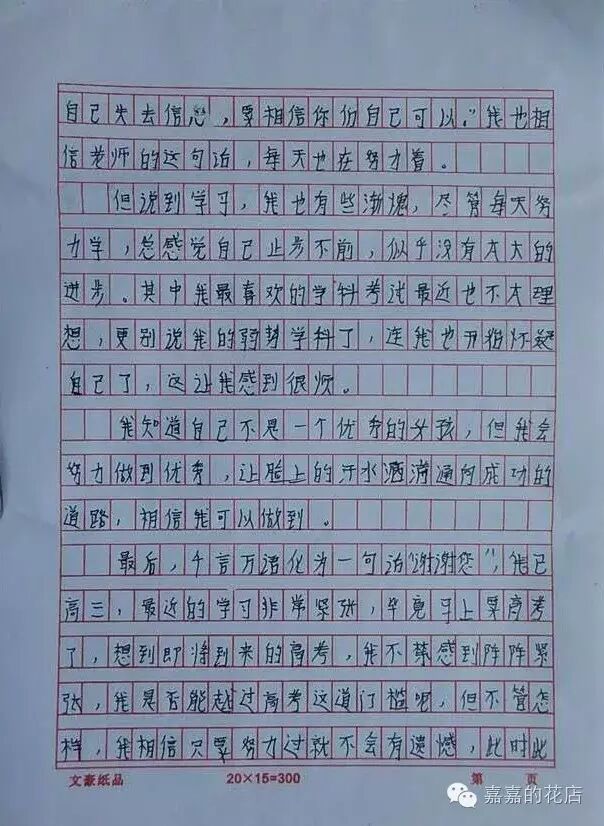 自己失去信心，要相信你们自己可以。”我也相
信老师的这句话，每天也在努力着。
但说到学习，我也有些渐愧，尽管每天努
力学，总感觉自己止步不前，似乎没有太大的
进步。其中我最喜欢的学科考试最近也不太理
想，更别说我的弱势学科了，连我也开始怀疑
自己了，这让我感到很烦。
我知道自己不是一个优秀的女孩，但我会
努力做到优秀，让脸上的汗水洒满通向成功的
道路，相信我可以做到。
最后，千言万语化为一句话“谢谢您”，我已
高三，最近的学习非常紧张，毕竟马上要高考
了，想到即将到来的高考，我不禁感到阵阵紧
张，我是否能越过高考这道门槛呢，但不管怎
样，我相信只要努力过就不会有遗憾，此时此
文豪纸品 20×15=300 第 页
嘉嘉的花店